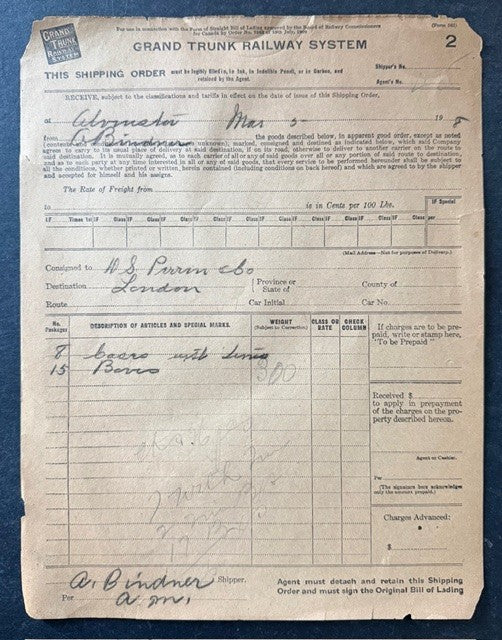 GRAND TRUNK RAILWAY SYSTEM
For use in connection with the Form of Straight Bill of Lading approved by the Board of Railway Commissioners
for Canada by Order No. 7562 of 15th July, 1909
(Form 583)
GRAND TRUNK RAILWAY SYSTEM
2
THIS SHIPPING ORDER must be legibly filled in, in Ink, in Indelible Pencil, or in Carbon, and
retained by the Agent.
Shipper's No.
Agent's No.
RECEIVE, subject to the classifications and tariffs in effect on the date of issue of this Shipping Order.
at Alvinston Mar 5 19 8
from A Bindner the goods described below, in apparent good order, except as noted
(contents and condition of contents of packages unknown), marked, consigned and destined as indicated below, which said Company
agrees to carry to its usual place of delivery at said destination, if on its road, otherwise to deliver to another carrier on the route to
said destination. It is mutually agreed, as to each carrier of all or any of said goods over all or any portion of said route to destination,
and as to each party at any time interested in all or any of said goods, that every service to be performed hereunder shall be subject to
all the conditions, whether printed or written, herein contained (including conditions on back hereof) and which are agreed to by the shipper
and accepted for himself and his assigns.
The Rate of Freight from
to is in Cents per 100 Lbs.
IF Times 1st IF Class IF Class IF Class IF Class IF Class IF Class IF Class IF Class IF Class per
IF Special
(Mail Address—Not for purposes of Delivery.)
Consigned to D S Perrin & Co
Destination London Province or State of County of
Route Car Initial Car No.
No. Packages DESCRIPTION OF ARTICLES AND SPECIAL MARKS. WEIGHT (Subject to Correction) CLASS OR RATE CHECK COLUMN
8 Cases with Tins
15 Boxes 300
If charges are to be pre-
paid, write or stamp here,
"To be Prepaid"
Received $
to apply in prepayment
of the charges on the pro-
perty described hereon.
Agent or Cashier.
Per
(The signature here acknowledges
only the amount prepaid.)
Charges Advanced:
$
A. Bindner Shipper.
Per A.M.
Agent must detach and retain this Shipping
Order and must sign the Original Bill of Lading